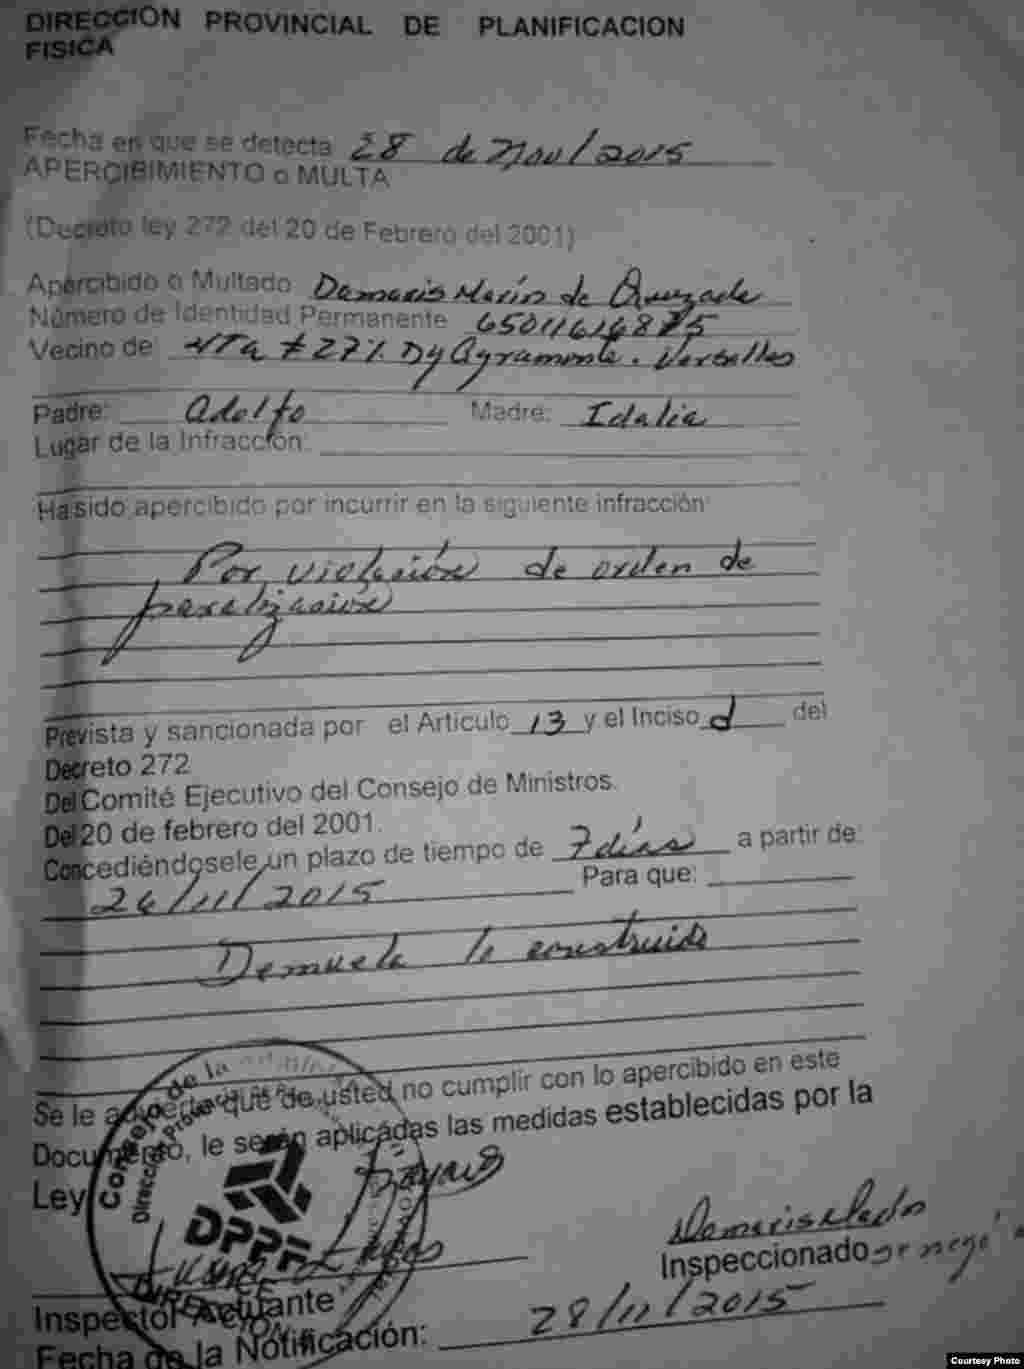 DIRECCION PROVINCIAL DE PLANIFICACION
FISICA
Fecha en que se detecta 28 de Nov/2015
APERCIBIMIENTO o MULTA
(Decreto ley 272 del 20 de Febrero del 2001)
Apercibido o Multado Damaris Marín de Quezada
Número de Identidad Permanente
Vecino de # 27 % y Agramonte. Versalles
Padre: Adolfo Madre: Idalia
Lugar de la Infracción:
Ha sido apercibido por incurrir en la siguiente infracción:
Por violación de orden de
paralización
Prevista y sancionada por el Articulo 13 y el Inciso d del
Decreto 272
Del Comité Ejecutivo del Consejo de Ministros.
Del 20 de febrero del 2001.
Concediéndosele un plazo de tiempo de 7 días a partir de:
/11/2015 Para que:
Demuela lo construido
Se le advierte que de usted no cumplir con lo apercibido en este
Documento, le serán aplicadas las medidas establecidas por la
Ley
Consejo de la
Dirección Provincial de
DPPF
DIRECCION
Inspector Actuante
Damaris
Inspeccionado se negó a
Fecha de la Notificación: 28/11/2015
Courtesy Photo